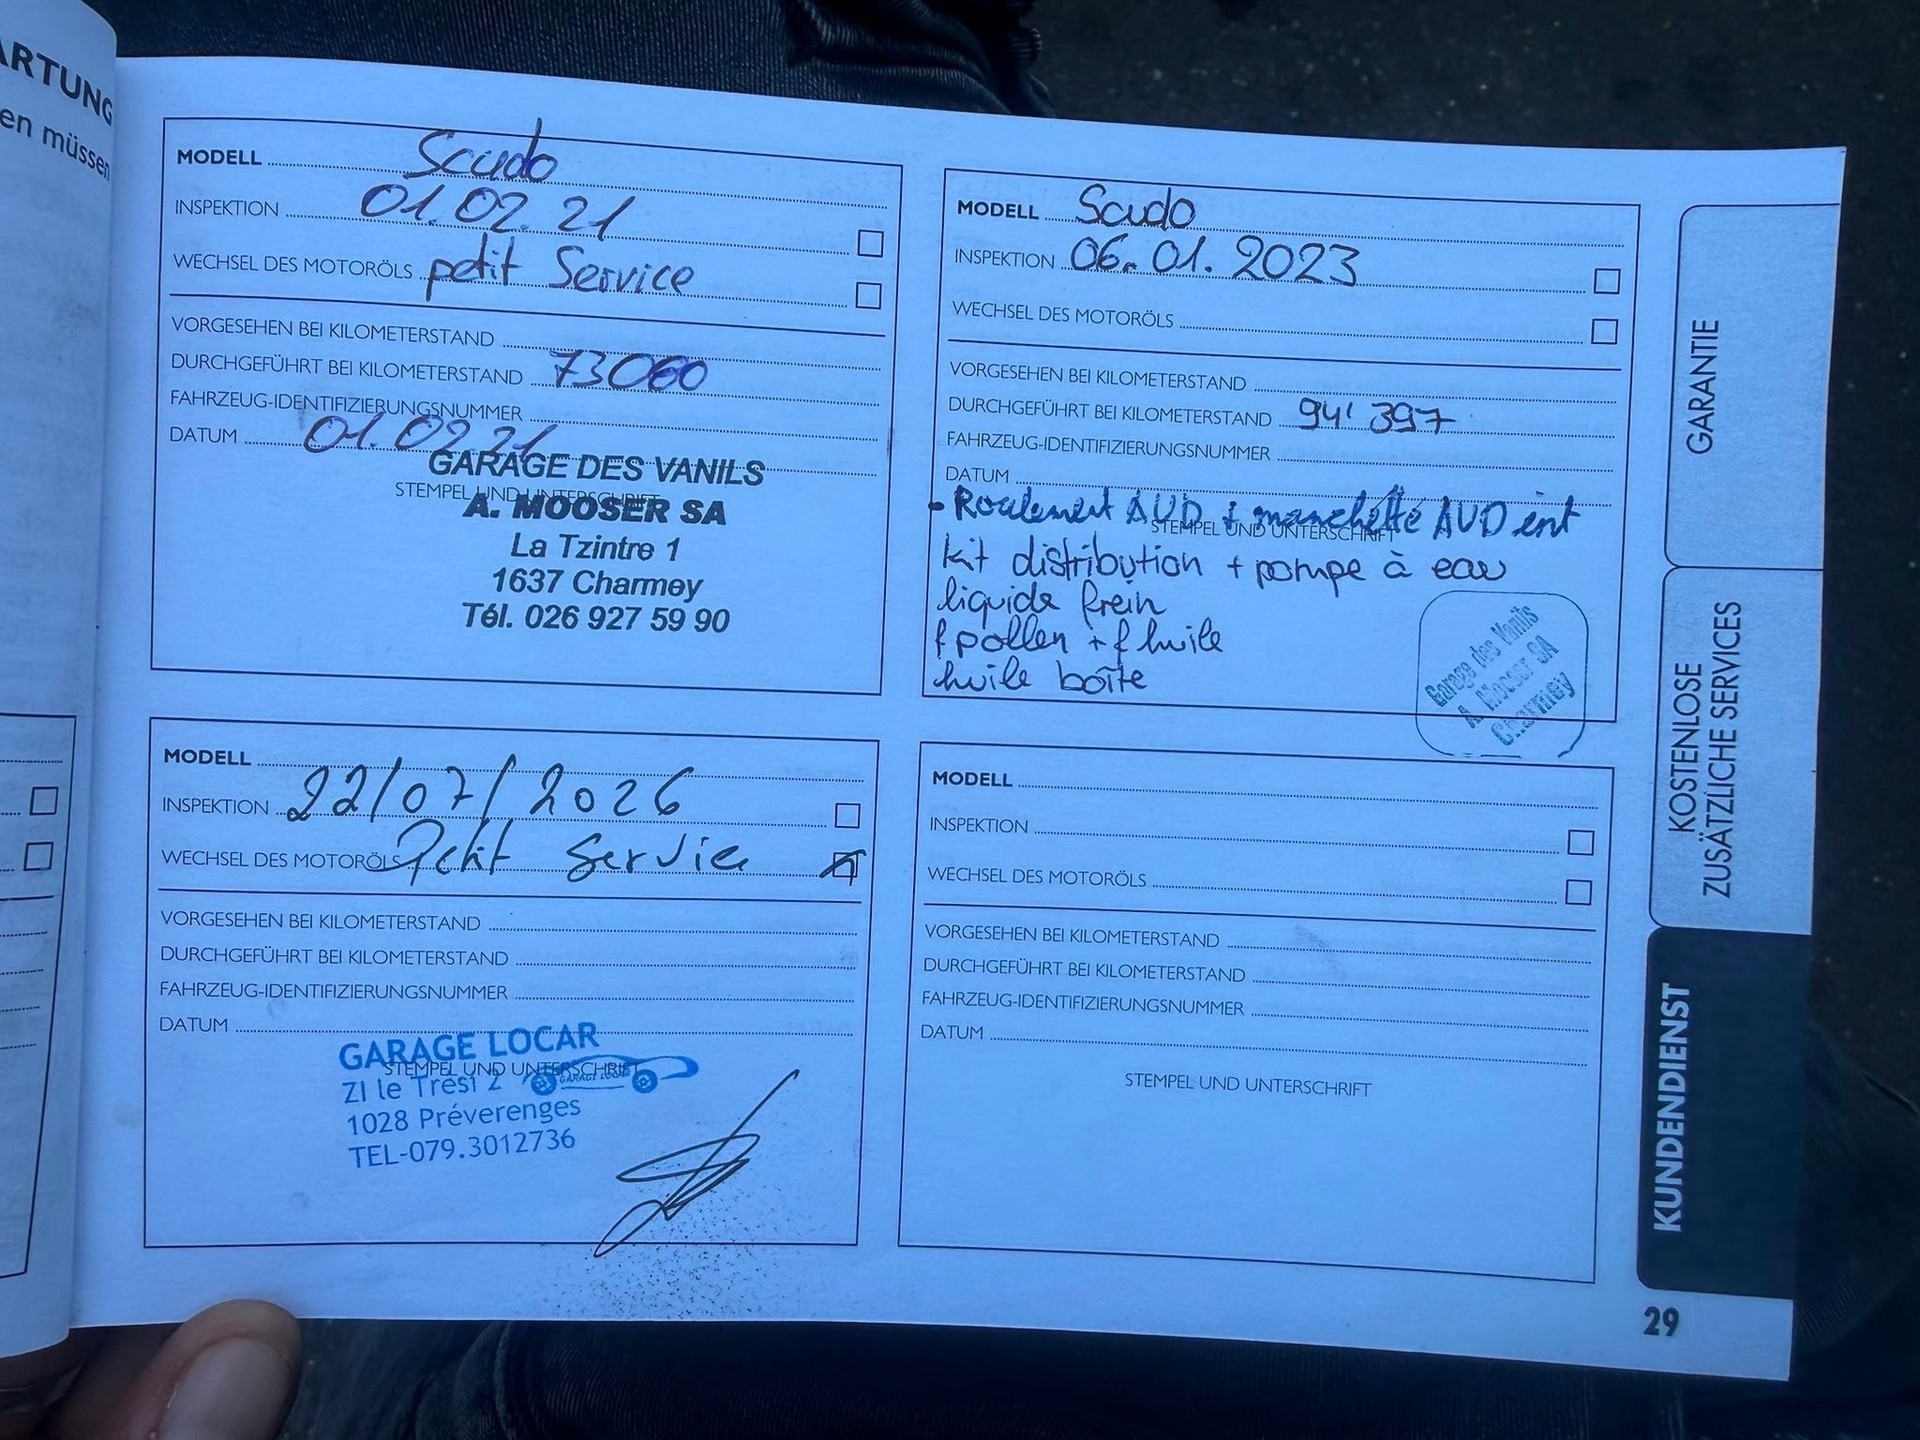 ARTUNG
en müssen
MODELL Scudo
INSPEKTION 01.02.21
WECHSEL DES MOTORÖLS petit Service
VORGESEHEN BEI KILOMETERSTAND
DURCHGEFÜHRT BEI KILOMETERSTAND 73060
FAHRZEUG-IDENTIFIZIERUNGSNUMMER
DATUM 01.02.21
STEMPEL UND UNTERSCHRIFT
GARAGE DES VANILS
A. MOOSER SA
La Tzintre 1
1637 Charmey
Tél. 026 927 59 90
MODELL Scudo
INSPEKTION 06.01.2023
WECHSEL DES MOTORÖLS
VORGESEHEN BEI KILOMETERSTAND
DURCHGEFÜHRT BEI KILOMETERSTAND 94'397
FAHRZEUG-IDENTIFIZIERUNGSNUMMER
DATUM
STEMPEL UND UNTERSCHRIFT
- Roulement AVD + manchette AVD ent
kit distribution + pompe à eau
liquide frein
f pollen + f huile
huile boîte
Garage des Vanils
A. Mooser SA
Charmey
MODELL
INSPEKTION 22/07/2026
WECHSEL DES MOTORÖLS Petit Service
VORGESEHEN BEI KILOMETERSTAND
DURCHGEFÜHRT BEI KILOMETERSTAND
FAHRZEUG-IDENTIFIZIERUNGSNUMMER
DATUM
STEMPEL UND UNTERSCHRIFT
GARAGE LOCAR
ZI le Trési 2
1028 Préverenges
TEL-079.3012736
MODELL
INSPEKTION
WECHSEL DES MOTORÖLS
VORGESEHEN BEI KILOMETERSTAND
DURCHGEFÜHRT BEI KILOMETERSTAND
FAHRZEUG-IDENTIFIZIERUNGSNUMMER
DATUM
STEMPEL UND UNTERSCHRIFT
GARANTIE
KOSTENLOSE
ZUSÄTZLICHE SERVICES
KUNDENDIENST
29